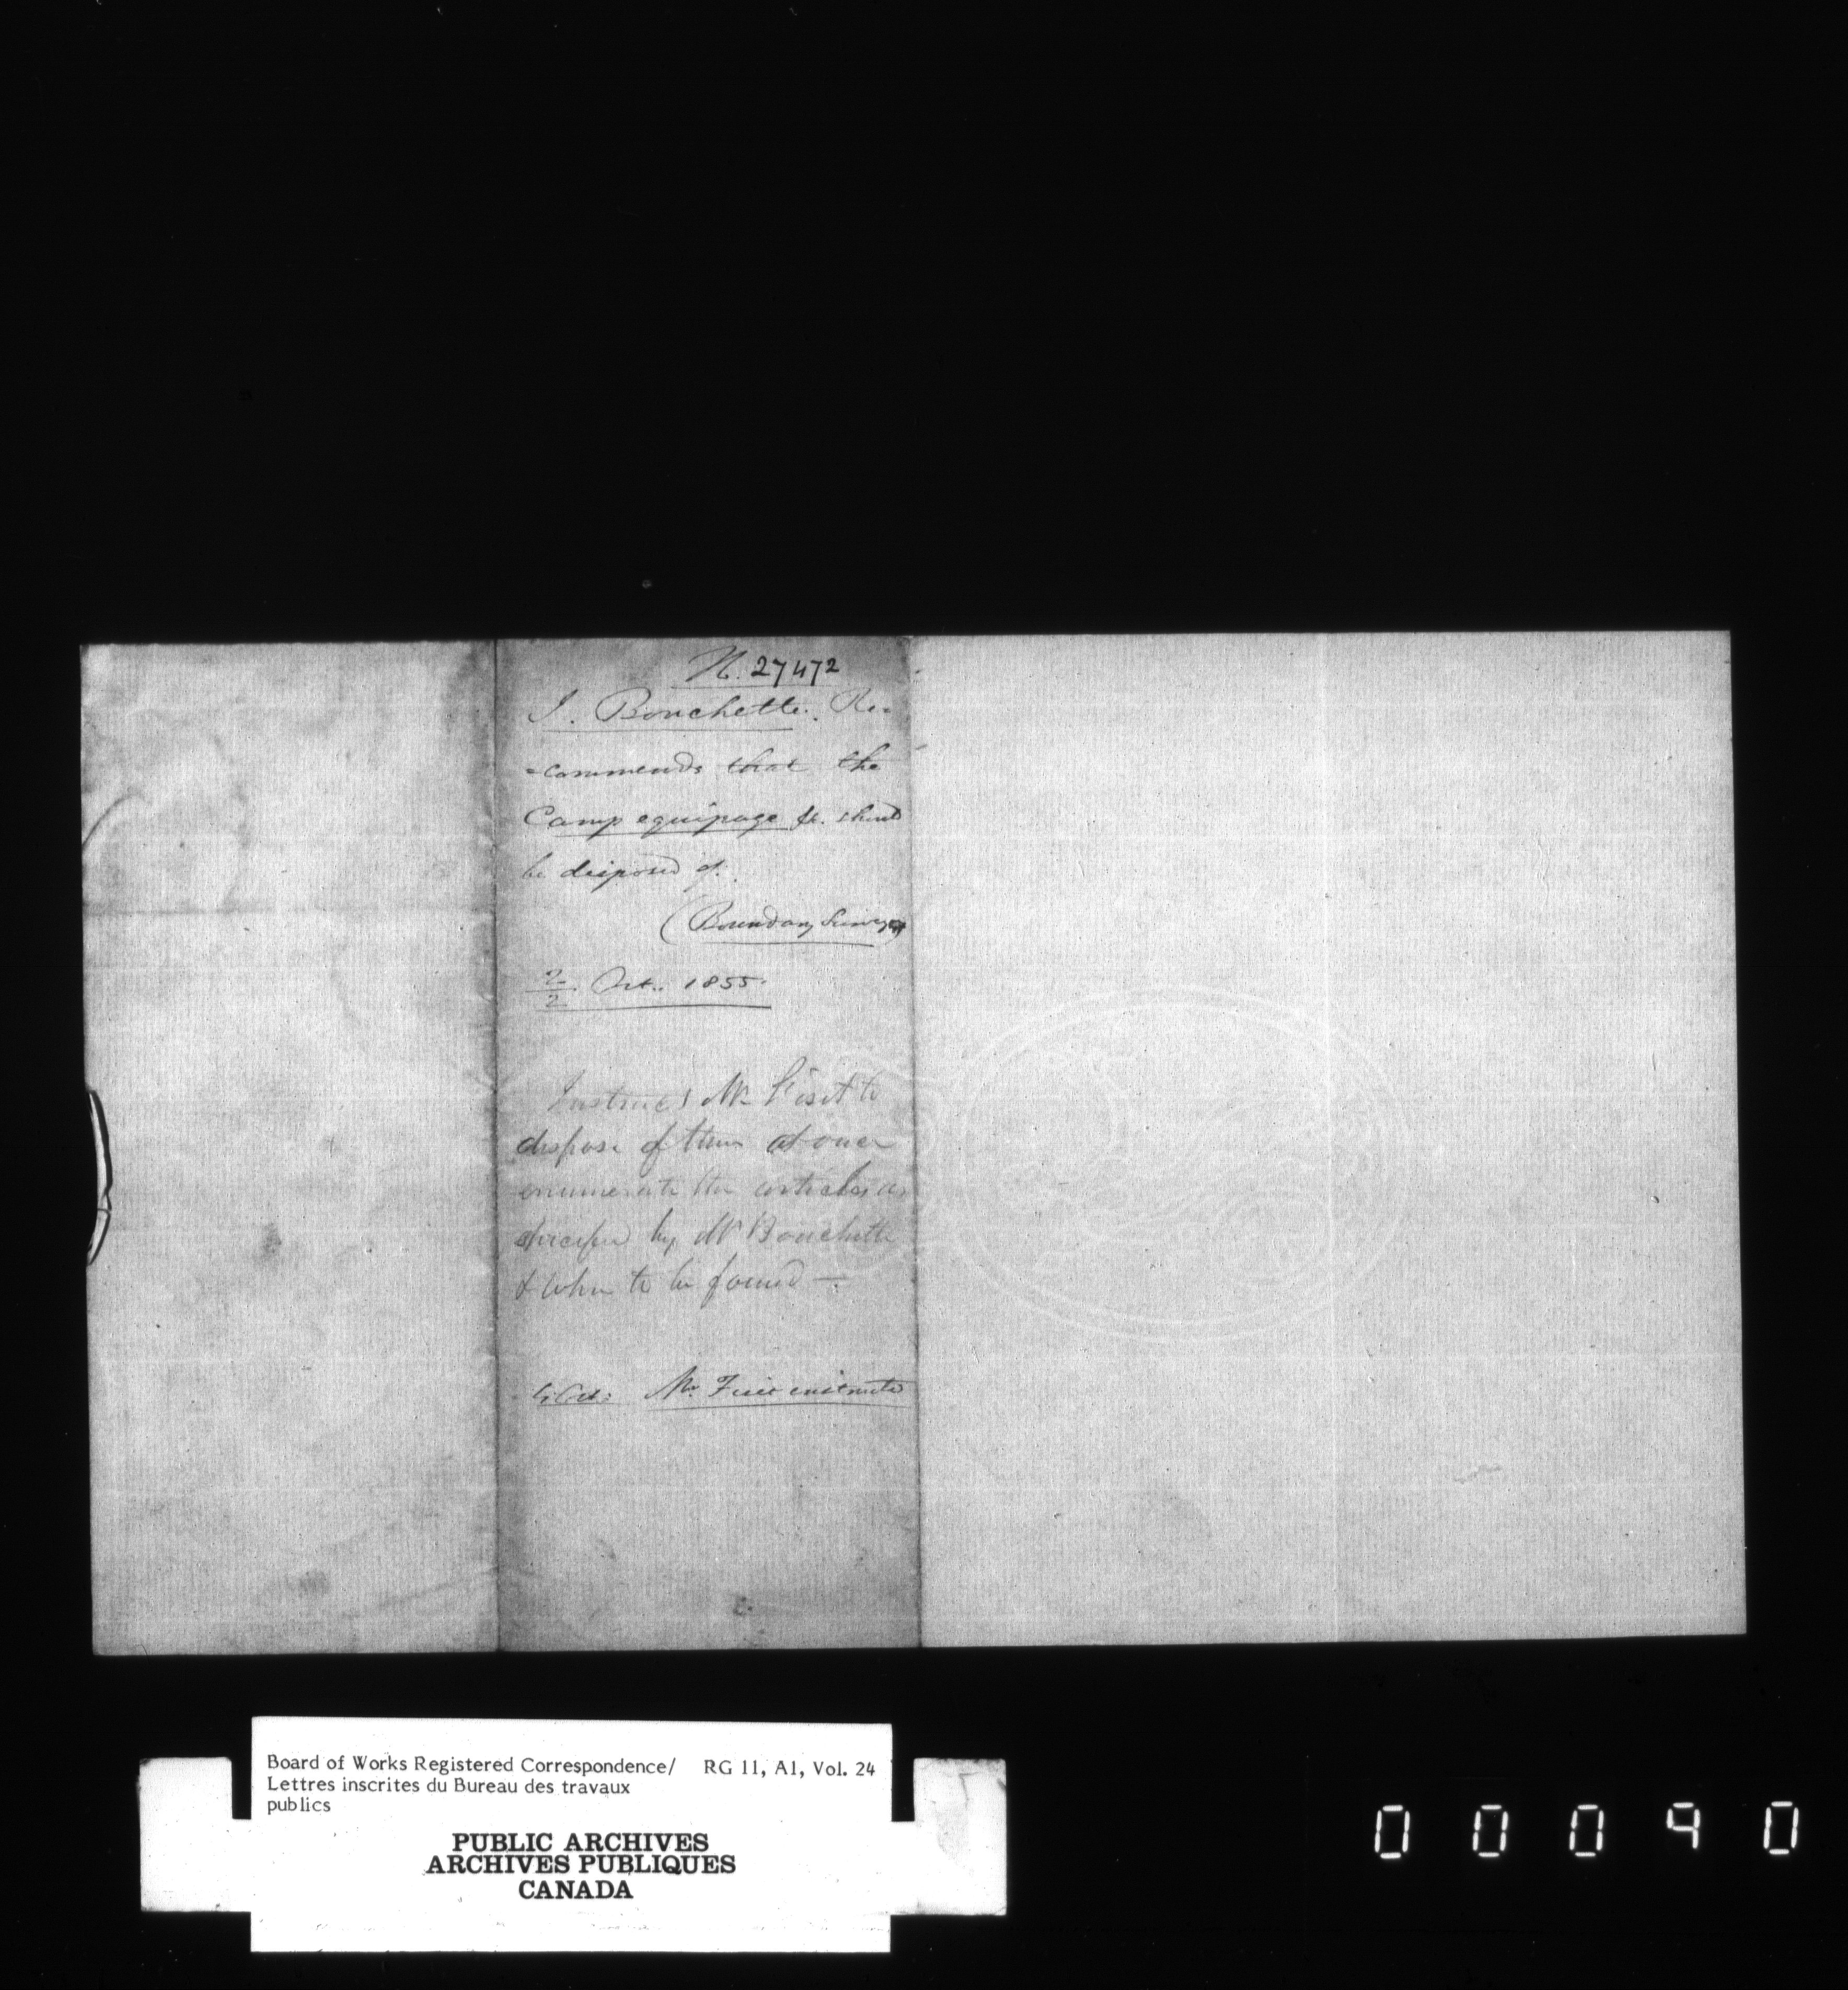 N. 27472
J. Bouchette. Re=
=commends that the
Camp equipage &c. should
be disposed of.
(Boundary Survey)
2/2. Oct. 1855.
Instruct Mr to
dispose of them at once
enumerate the articles as
specified by Mr Bouchette
& where to be found —.
Mr.
Board of Works Registered Correspondence/ RG 11, A1, Vol. 24
Lettres inscrites du Bureau des travaux
publics
PUBLIC ARCHIVES
ARCHIVES PUBLIQUES
CANADA
00090